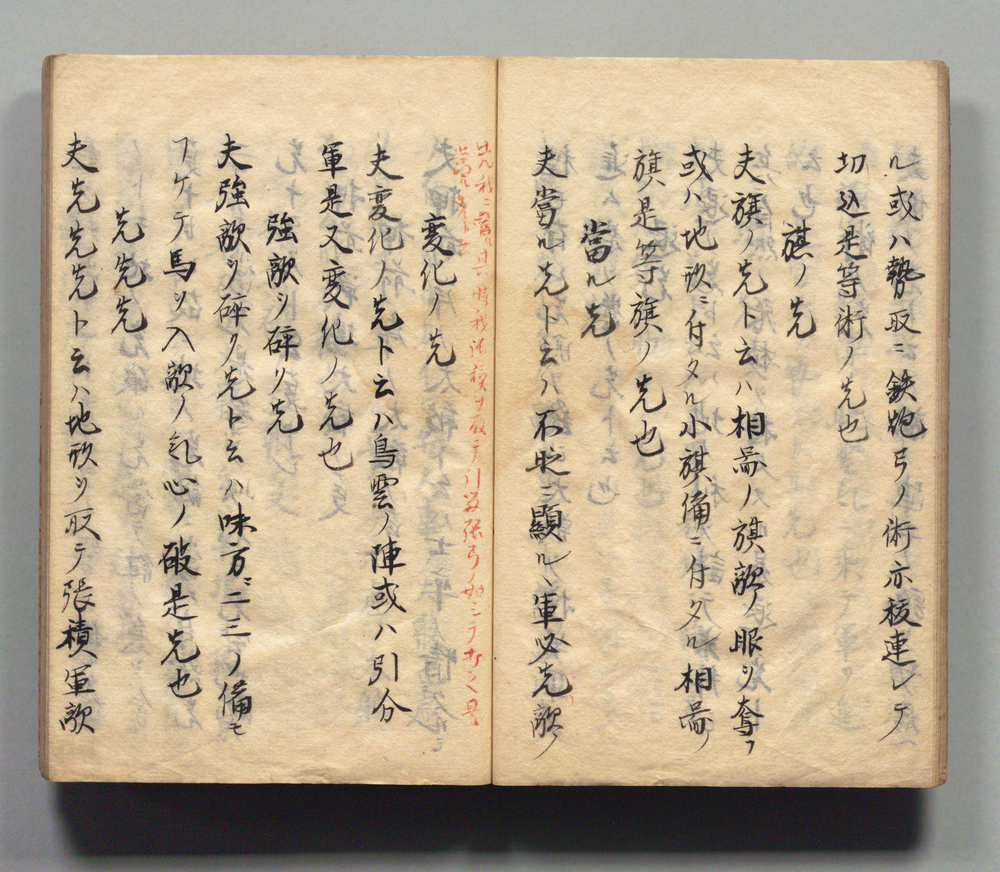 ル或ハ勢取ニ鉄炮弓ノ術亦被連レテ
切込是等術ノ先也
旗ノ先
夫旗ノ先ト云ハ相図ノ旗敵ノ眼ヲ奪フ
或ハ地形ニ付タル小旗備ニ付タル相図ノ
旗是等旗ノ先也
當ル先
夫當ル先ト云ハ不時ニ顕ルヽ軍必先敵ノ
変化ノ先
夫変化ノ先ト云ハ鳥雲ノ陣或ハ引分
軍是又変化ノ先也
強敵ヲ砕リ先
夫強敵ヲ砕ク先ト云ハ味方ニ二三ノ備モ
フケテ馬ヲ入敵ノ気心ノ破是先也
先先先
夫先先先ト云ハ地形ヲ取テ張積軍敵